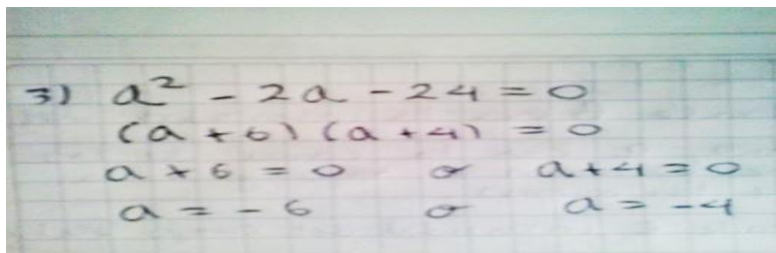 3) a² - 2a - 24 = 0
(a + 6) (a + 4) = 0
a + 6 = 0 or a + 4 = 0
a = - 6 or a = - 4